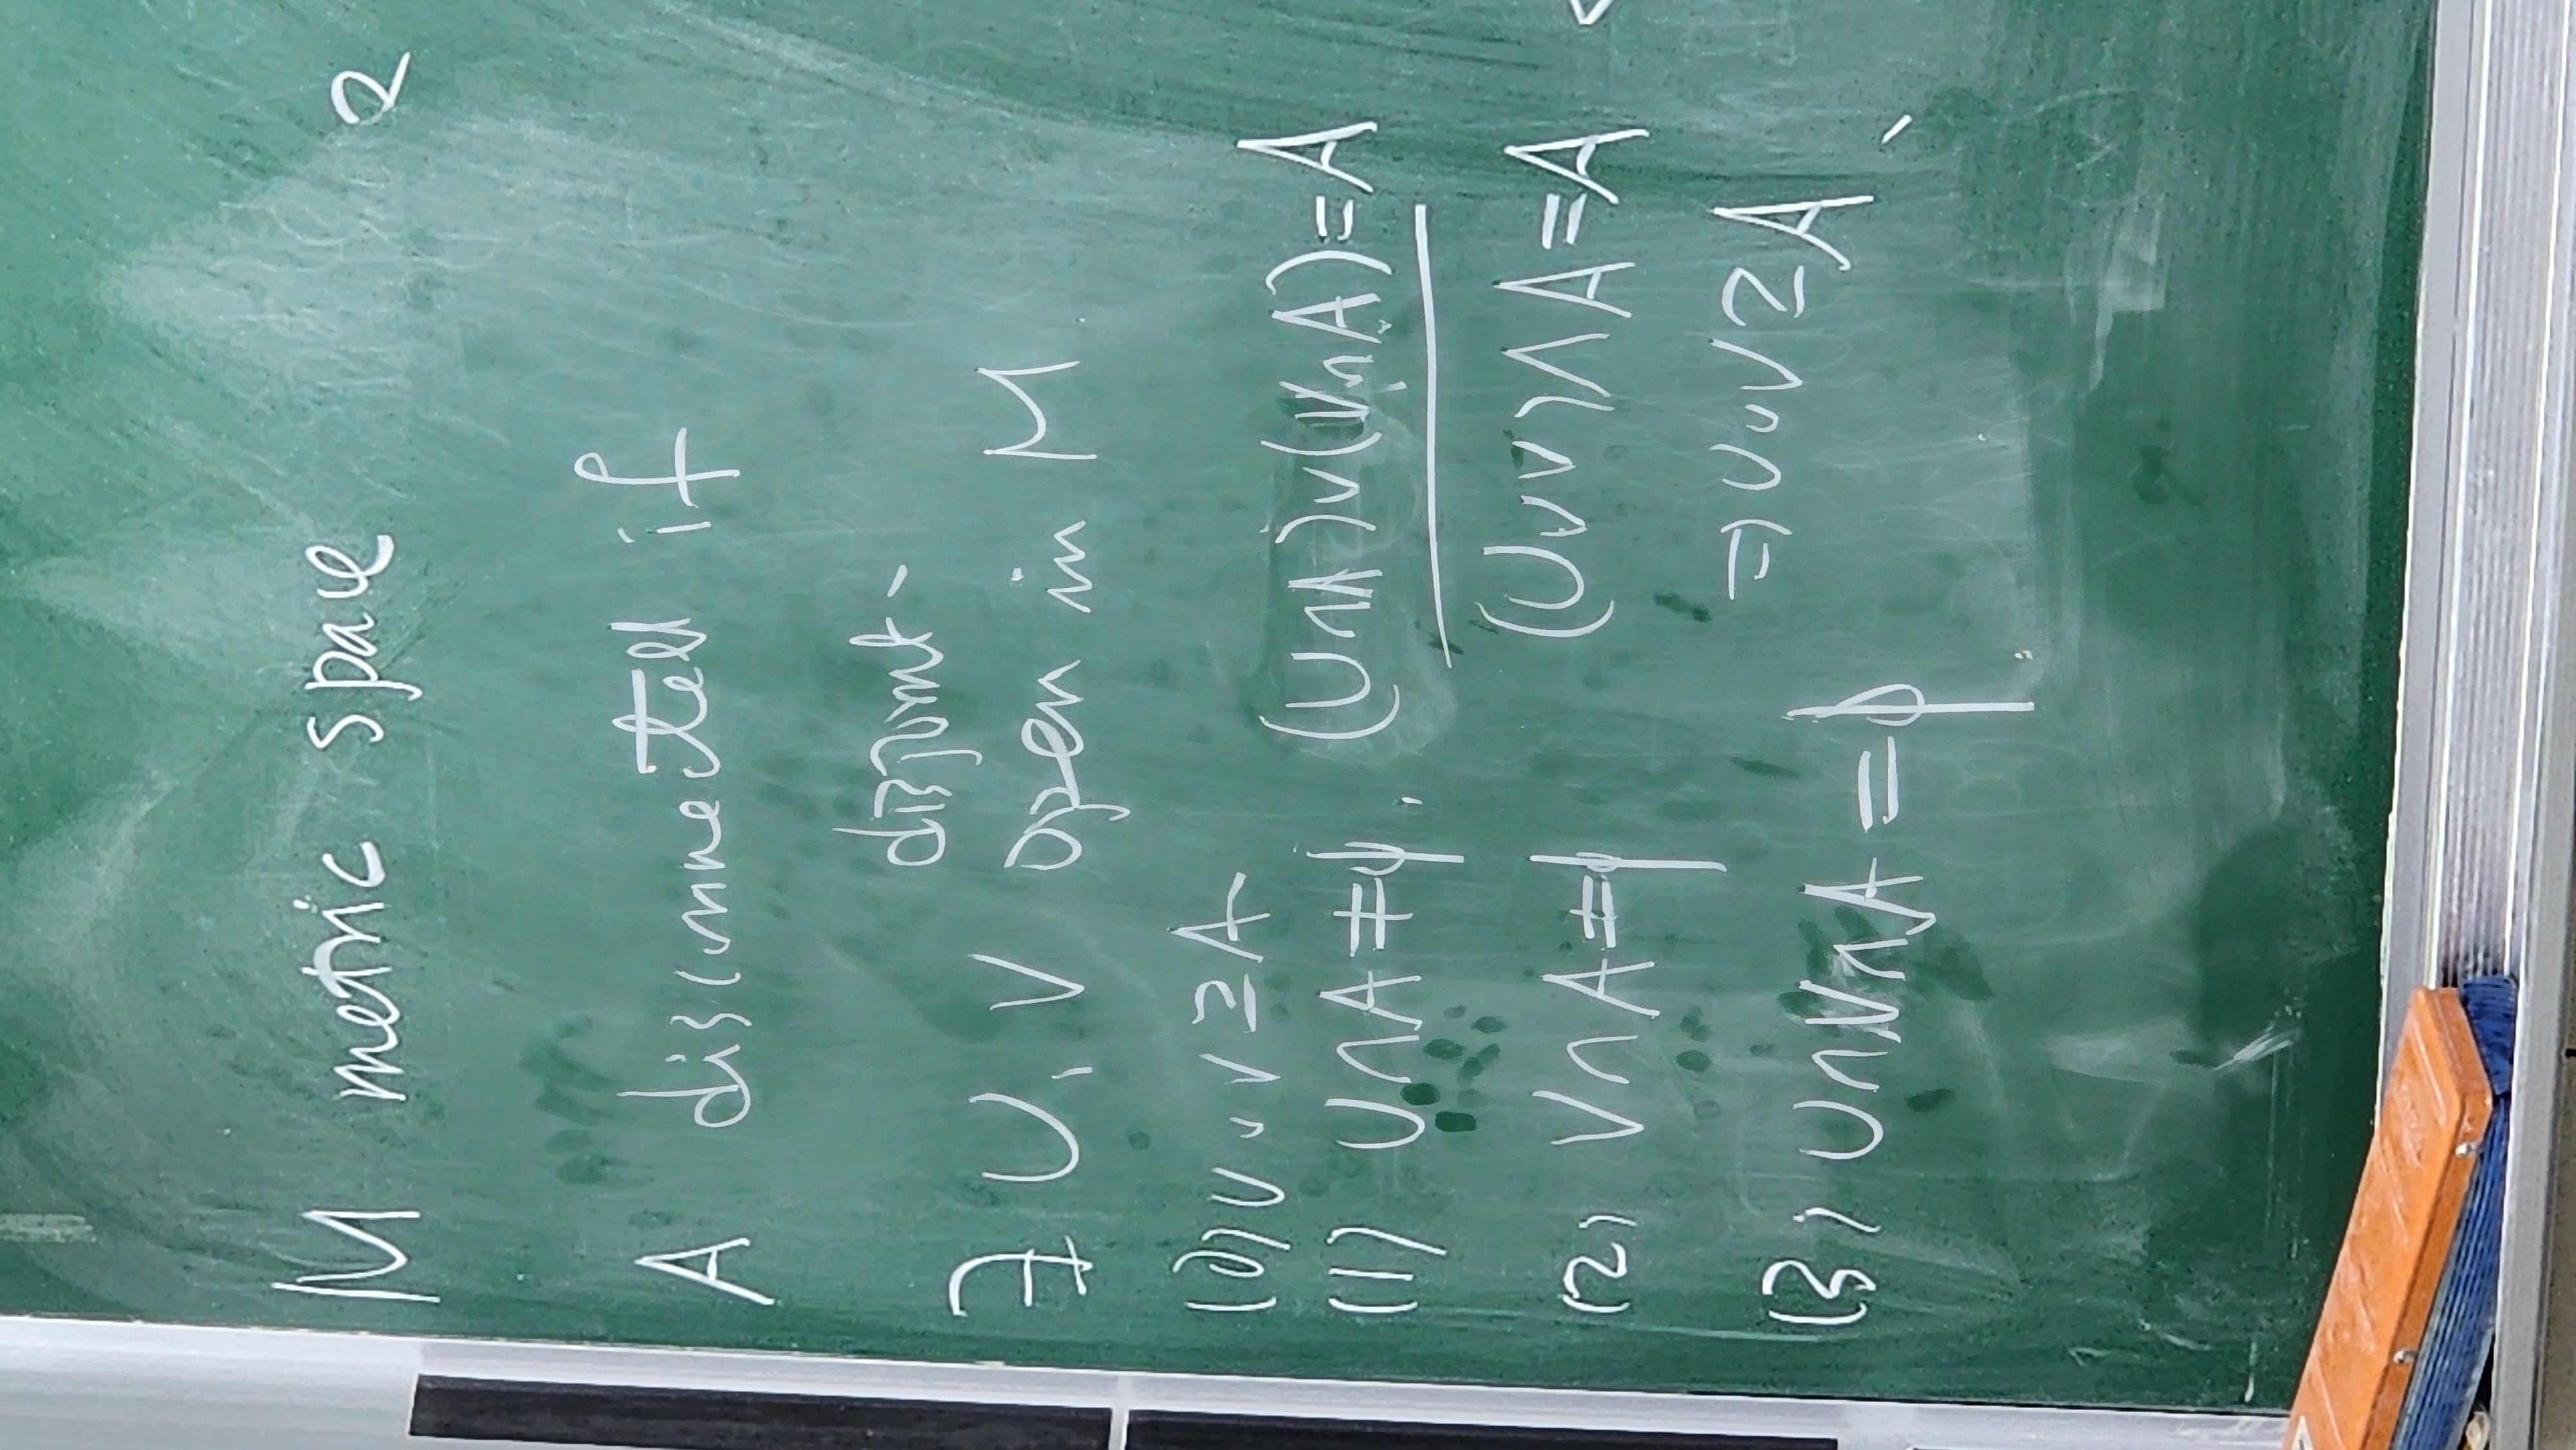 M metric space 2
A disconnected if
disjoint
∃ U, V open in M.
(0) U∪V⊇A
(1) U∩A≠ϕ, (U∩A)∪(V∩A)=A
(2) V∩A≠ϕ (U∪V)∩A=A
⇒U∪V⊇A
(3) U∩V∩A=ϕ.